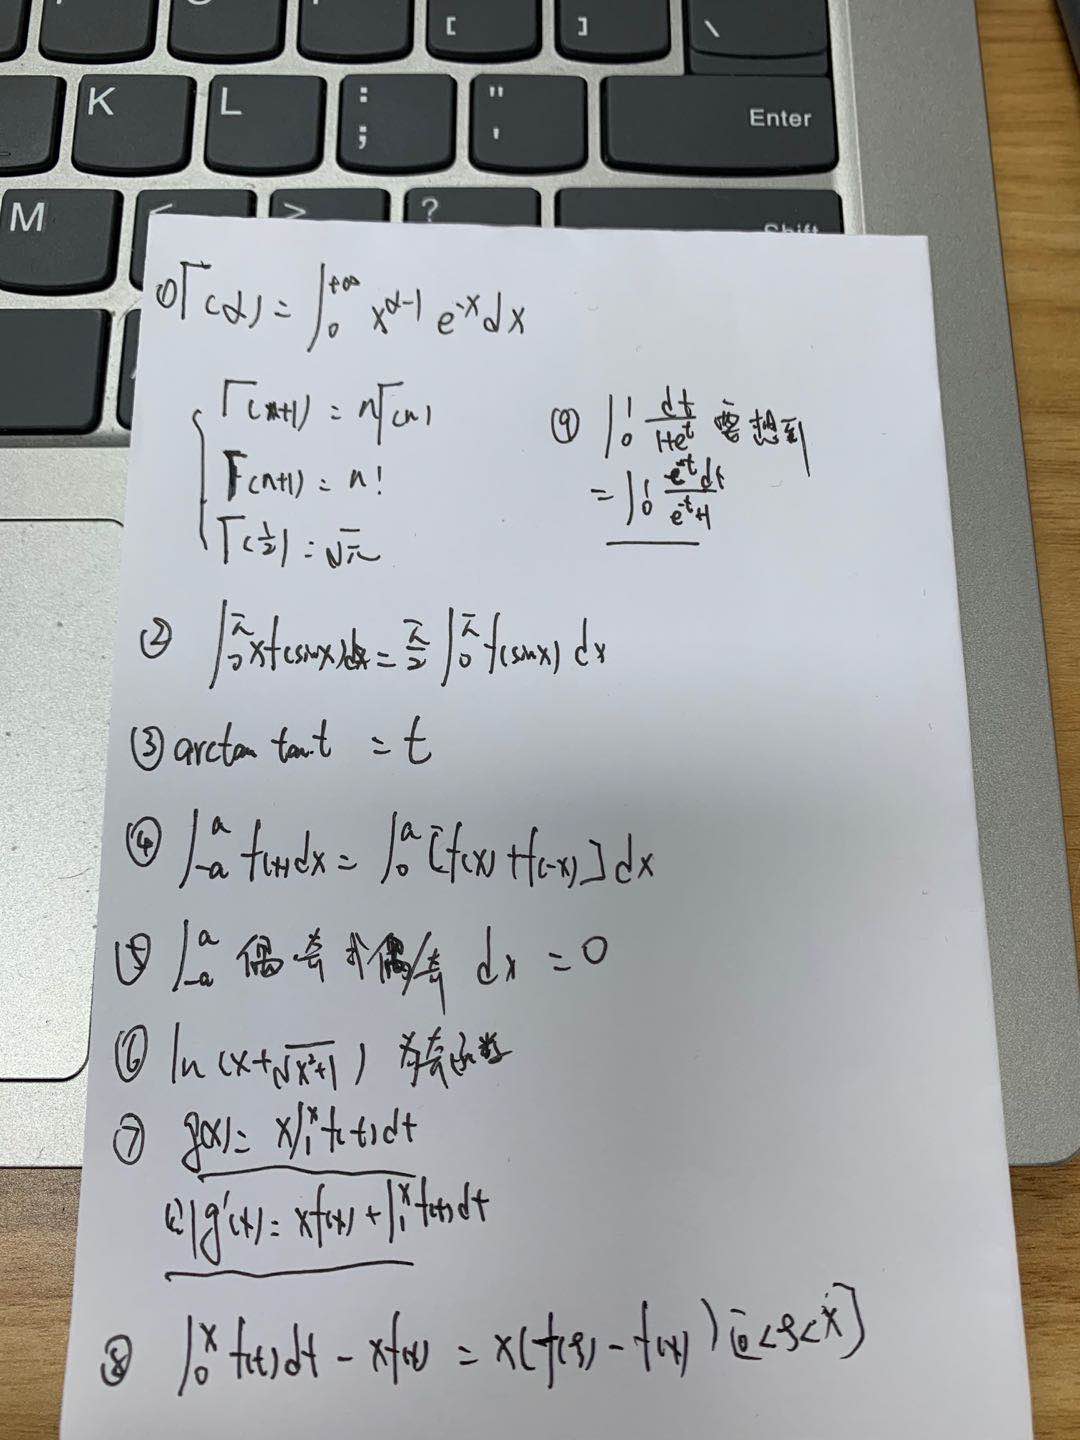 [ ] \
K L : ; " ' Enter
M < > ? Shift
①Γ(α) = ∫₀^{+∞} x^{α-1} e^{-x} dx
Γ(n+1) = nΓ(n)
Γ(n+1) = n!
Γ(1/2) = √π
⑨ ∫₀¹ dt/(1+e^t) 要想到
= ∫₀¹ e^{-t}dt/(e^{-t}+1)
② ∫₀^π xf(sinx)dx = π/2 ∫₀^π f(sinx) dx
③ arctan tant = t
④ ∫_{-a}^a f(x)dx = ∫₀^a [f(x)+f(-x)]dx
⑤ ∫_{-a}^a 偶·奇 或 偶/奇 dx = 0
⑥ ln(x+√(x²+1)) 为奇函数
⑦ g(x) = x∫₁^x f(t)dt
则 g'(x) = xf(x) + ∫₁^x f(t)dt
⑧ ∫₀^x f(t)dt - xf(x) = x(f(ξ) - f(x)) [0<ξ<x]